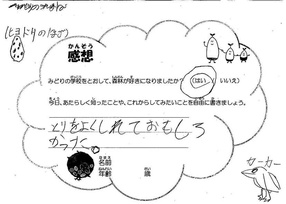 (ヒヨドリのはね)
かんそう
感想
みどりの学校をとおして、森林が好きになりましたか? (はい / いいえ)
今日、あたらしく知ったことや、これからしてみたいことを自由に書きましょう。
とりをよくしれておもしろ
かった。
カーカー
名前
年齢 歳